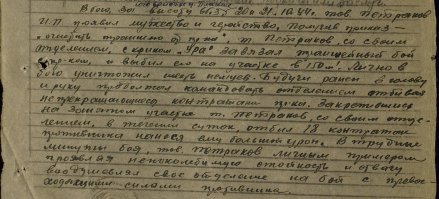 В бою за высоту 20 и 21.10.44. тов Петраков
И.П. проявил мужество и геройство. Получив приказ —
"очистить траншею от пр-ка" т. Петраков, со своим
отделением, с криком "Ура" завязал траншейный бой
с пр-ком, и выбил его на участке в 150 м. Лично в
бою уничтожил шесть немцев. Будучи ранен в голову
и руку продолжал командовать отделением отбивая
непрекращающиеся контратаки пр-ка. Закрепившись
на занятом участке т. Петраков, со своим отде-
лением, в течении суток отбил 18 контратак
противника нанося ему большой урон. В трудные
минуты боя, тов. Петраков личным примером
проявлял непоколебимую стойкость и отвагу
воодушевляя свое отделение на бой с превос-
ходящими силами противника.